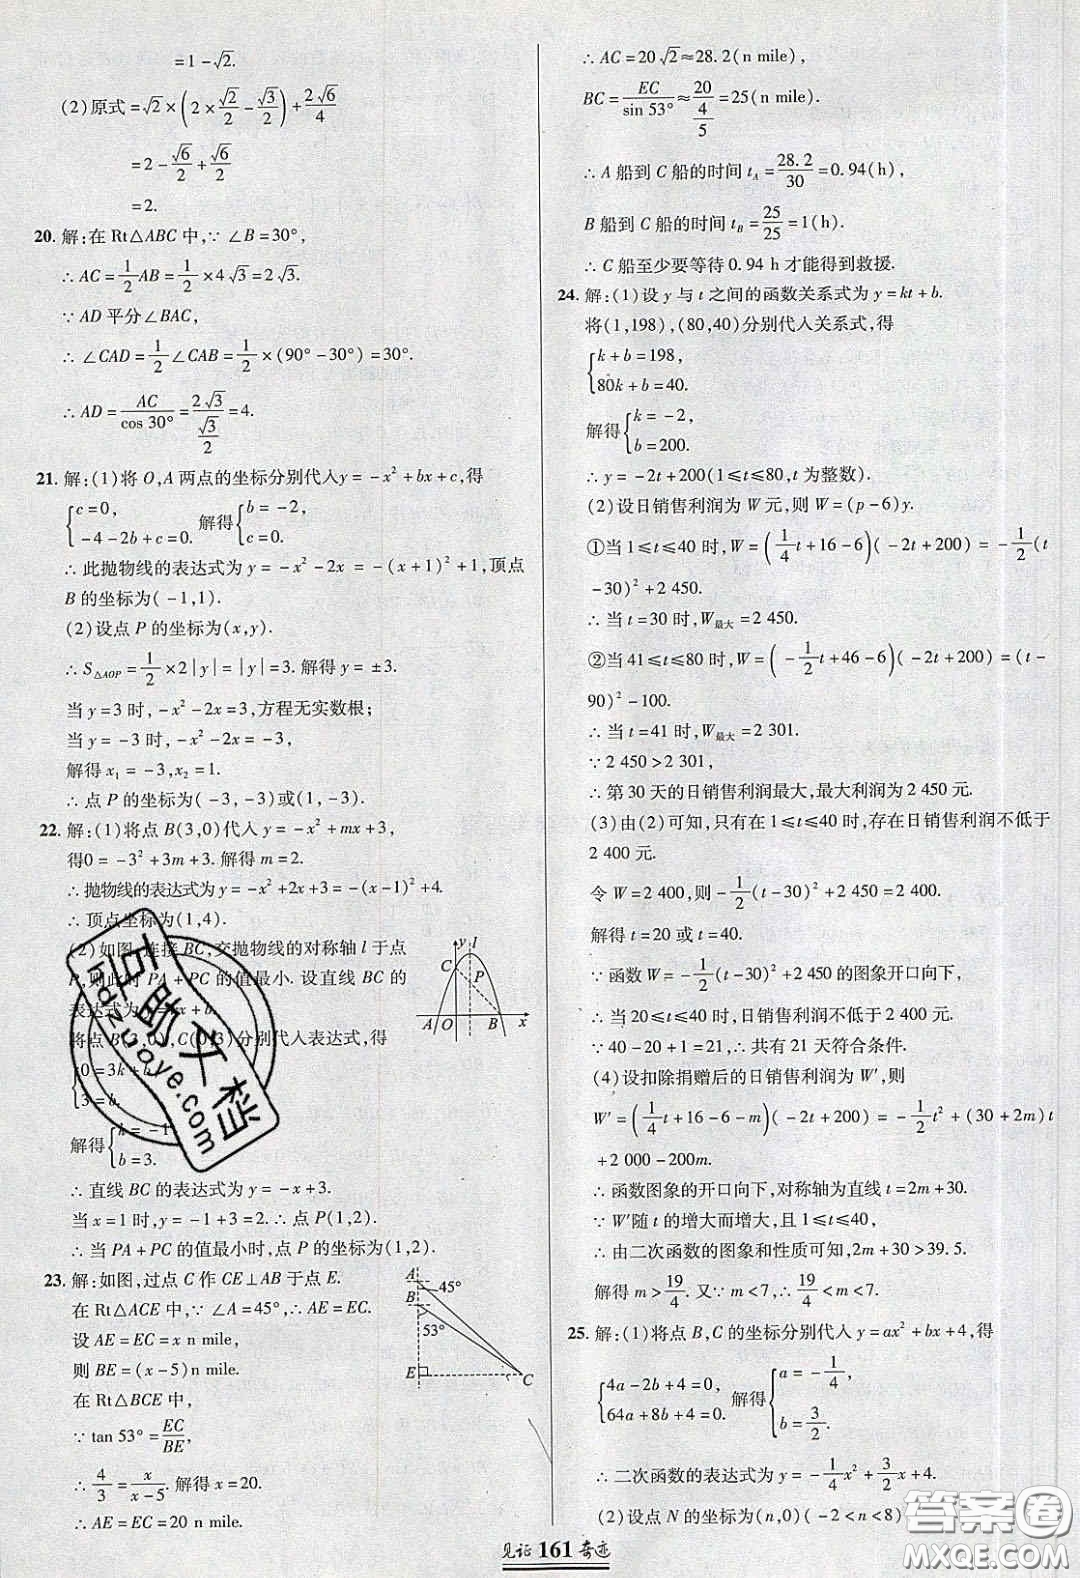 =1-√2.
(2)原式=√2×(2×√2/2-√3/2)+2√6/4
=2-√6/2+√6/2
=2.
20. 解:在 Rt△ABC 中,∵ ∠B=30°,
∴ AC=1/2AB=1/2×4√3=2√3.
∵ AD 平分∠BAC,
∴ ∠CAD=1/2∠CAB=1/2×(90°-30°)=30°.
∴ AD=AC/cos 30°=2√3/(√3/2)=4.
21. 解:(1)将 O,A 两点的坐标分别代入y=-x²+bx+c,得
{c=0, -4-2b+c=0. 解得{b=-2, c=0.
∴ 此抛物线的表达式为 y=-x²-2x=-(x+1)²+1,顶点
B 的坐标为(-1,1).
(2)设点 P 的坐标为(x,y).
∴ S△AOP=1/2×2|y|=|y|=3. 解得 y=±3.
当 y=3 时,-x²-2x=3,方程无实数根;
当 y=-3 时,-x²-2x=-3,
解得 x₁=-3,x₂=1.
∴ 点 P 的坐标为(-3,-3)或(1,-3).
22. 解:(1)将点 B(3,0)代入 y=-x²+mx+3,
得0=-3²+3m+3. 解得 m=2.
∴ 抛物线的表达式为 y=-x²+2x+3=-(x-1)²+4.
∴ 顶点坐标为(1,4).
(2)如图,连接 BC,交抛物线的对称轴 l 于点
P,则此时 PA+PC 的值最小. 设直线 BC 的
表达式为 y=kx+b.
将点 B(3,0),C(0,3)分别代入表达式,得
{0=3k+b, 3=b.
解得{k=-1, b=3.
∴ 直线 BC 的表达式为 y=-x+3.
当 x=1 时,y=-1+3=2.∴ 点 P(1,2).
∴ 当 PA+PC 的值最小时,点 P 的坐标为(1,2).
y l C P A O B x
23. 解:如图,过点 C 作 CE⊥AB 于点 E.
在 Rt△ACE 中,∵ ∠A=45°,∴ AE=EC.
设 AE=EC=x n mile.
则 BE=(x-5)n mile.
在 Rt△BCE 中,
∵ tan 53°=EC/BE,
∴ 4/3=x/(x-5). 解得 x=20.
∴ AE=EC=20 n mile.
A 45° B 53° E C
∴ AC=20√2≈28.2(n mile).
BC=EC/sin 53°≈20/(4/5)=25(n mile).
∴ A 船到 C 船的时间 t_A=28.2/30=0.94(h),
B 船到 C 船的时间 t_B=25/25=1(h).
∴ C 船至少要等待 0.94 h 才能得到救援.
24. 解:(1)设 y 与 t 之间的函数关系式为 y=kt+b.
将(1,198),(80,40)分别代入关系式,得
{k+b=198, 80k+b=40.
解得{k=-2, b=200.
∴ y=-2t+200(1≤t≤80,t 为整数).
(2)设日销售利润为 W 元,则 W=(p-6)y.
①当 1≤t≤40 时,W=(1/4t+16-6)(-2t+200)=-1/2(t
-30)²+2 450.
∴ 当 t=30 时,W最大=2 450.
②当 41≤t≤80 时,W=(-1/2t+46-6)(-2t+200)=(t-
90)²-100.
∴ 当 t=41 时,W最大=2 301.
∵ 2 450>2 301,
∴ 第 30 天的日销售利润最大,最大利润为 2 450 元.
(3)由(2)可知,只有在 1≤t≤40 时,存在日销售利润不低于
2 400 元.
令 W=2 400,则-1/2(t-30)²+2 450=2 400.
解得 t=20 或 t=40.
∵ 函数 W=-1/2(t-30)²+2 450 的图象开口向下,
∴ 当 20≤t≤40 时,日销售利润不低于 2 400 元.
∵ 40-20+1=21,∴ 共有 21 天符合条件.
(4)设扣除捐赠后的日销售利润为 W′,则
W′=(1/4t+16-6-m)(-2t+200)=-1/2t²+(30+2m)t
+2 000-200m.
∴ 函数图象的开口向下,对称轴为直线 t=2m+30.
∵ W′随 t 的增大而增大,且 1≤t≤40,
∴ 由二次函数的图象和性质可知,2m+30>39.5.
解得 m>19/4. 又∵ m<7,∴ 19/4<m<7.
25. 解:(1)将点 B,C 的坐标分别代入 y=ax²+bx+4,得
{4a-2b+4=0, 64a+8b+4=0. 解得{a=-1/4, b=3/2.
∴ 二次函数的表达式为 y=-1/4x²+3/2x+4.
(2)设点 N 的坐标为(n,0)(-2<n<8)
见证 161 奇迹
百助文档
hdzuoye.com
答案圈
MXQE.COM